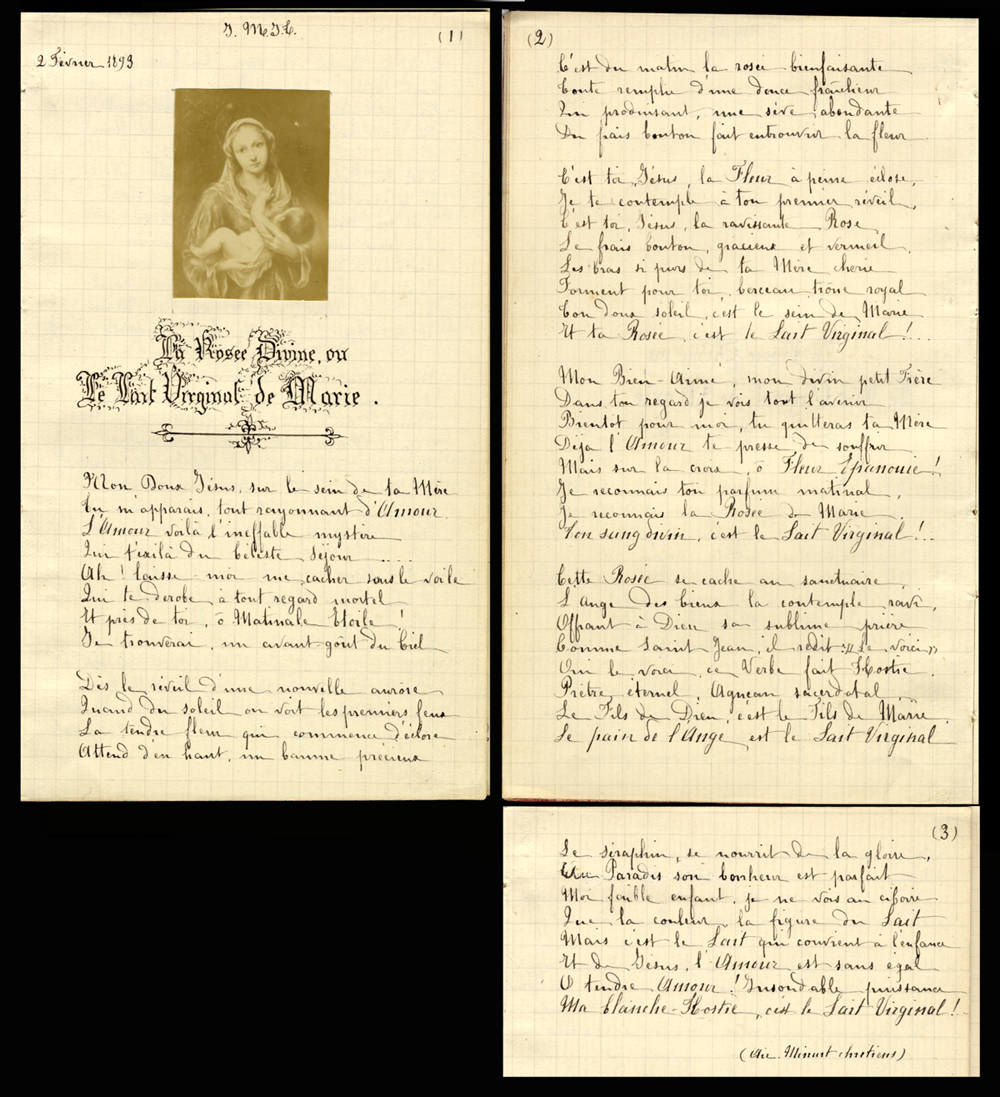 J. M. J. T.
(1)
2 Février 1893
La Rosée Divine, ou
Le Lait Virginal de Marie.
Mon Doux Jésus, sur le sein de ta Mère
Tu m'apparais, tout rayonnant d'Amour.
L'Amour voilà l'ineffable mystère
Qui t'exila du Céleste séjour .....
Ah ! laisse-moi me cacher sous le voile
Qui te dérobe à tout regard mortel
Et près de toi, ô Matinale Etoile !
Je trouverai, un avant-goût du Ciel
Dès le réveil d'une nouvelle aurore
Quand du soleil on voit les premiers feux
La tendre fleur qui commence d'éclore
Attend d'en haut, un baume précieux
(2)
C'est du matin la rosée bienfaisante
Toute remplie d'une douce fraîcheur
Qui produisant, une sève abondante
Du frais bouton fait entrouvrir la fleur.
C'est toi, Jésus, la Fleur à peine éclose,
Je te contemple à ton premier réveil,
C'est toi, Jésus, la ravissante Rose
Le frais bouton, gracieux et vermeil.
Les bras si purs de ta Mère chérie
Forment pour toi, berceau, trône royal
Ton doux soleil, c'est le sein de Marie
Et ta Rosée, c'est le Lait Virginal !...
Mon Bien-Aimé, mon divin petit Frère
Dans ton regard je vois tout l'avenir
Bientôt pour moi, tu quitteras ta Mère
Déjà l'Amour te presse de souffrir
Mais sur la croix, ô Fleur Epanouie !
Je reconnais ton parfum matinal,
Je reconnais la Rosée de Marie.
Ton sang divin, c'est le Lait Virginal !...
Cette Rosée se cache au sanctuaire,
L'Ange des Cieux la contemple ravi,
Offrant à Dieu sa sublime prière
Comme Saint Jean, il redit : « Le voici »
Oui le voici, ce Verbe fait Hostie.
Prêtre éternel, Agneau sacerdotal,
Le Fils de Dieu, c'est le Fils de Marie.
Le pain de l'Ange est le Lait Virginal
(3)
Le séraphin, se nourrit de la gloire,
Au Paradis son bonheur est parfait
Moi faible enfant, je ne vois au ciboire
Que la couleur, la figure du Lait
Mais c'est le Lait qui convient à l'enfance
Et de Jésus, l'Amour est sans égal
O tendre Amour ! Insondable puissance
Ma blanche Hostie, c'est le Lait Virginal !
(Air. Minuit chrétiens)